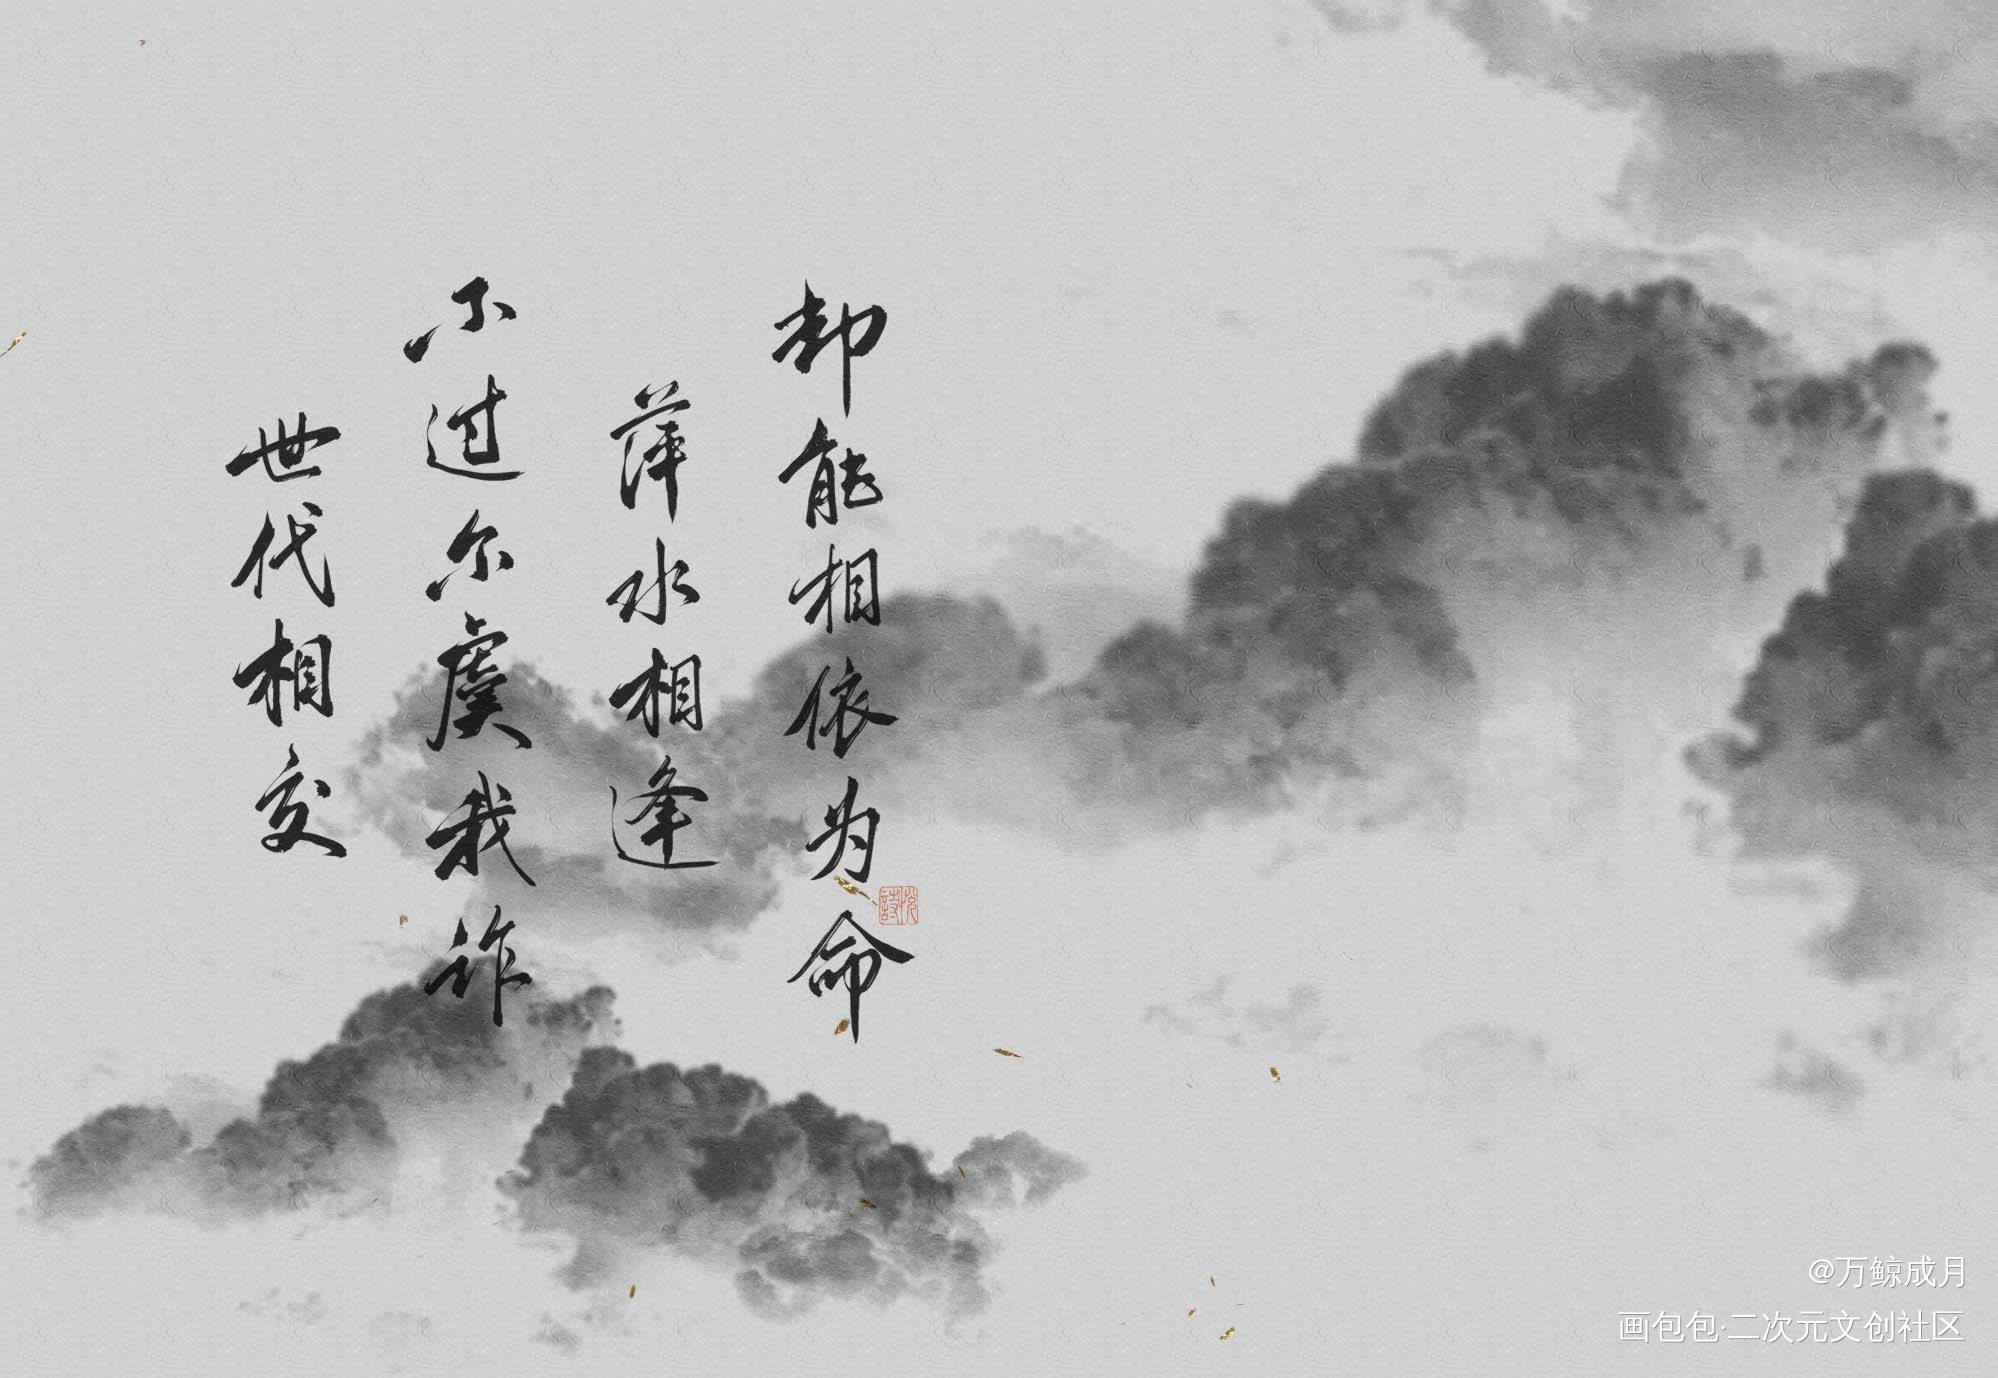 世代相交
不过尔虞我诈
萍水相逢
却能相依为命
悦詩
@万鲸成月
画包包·二次元文创社区